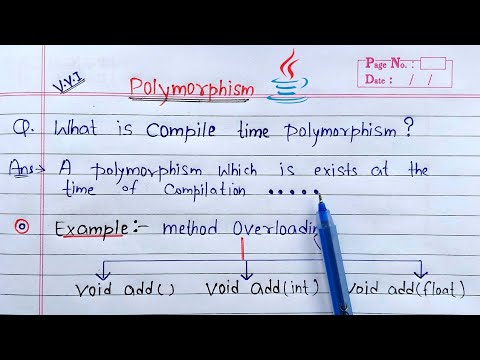 V.V.I
Polymorphism
Page No. :
Date : / /
Q. What is compile time polymorphism?
Ans → A polymorphism which is exists at the
time of compilation .....
Example:- method Overloadin
void add() void add(int) void add(float)